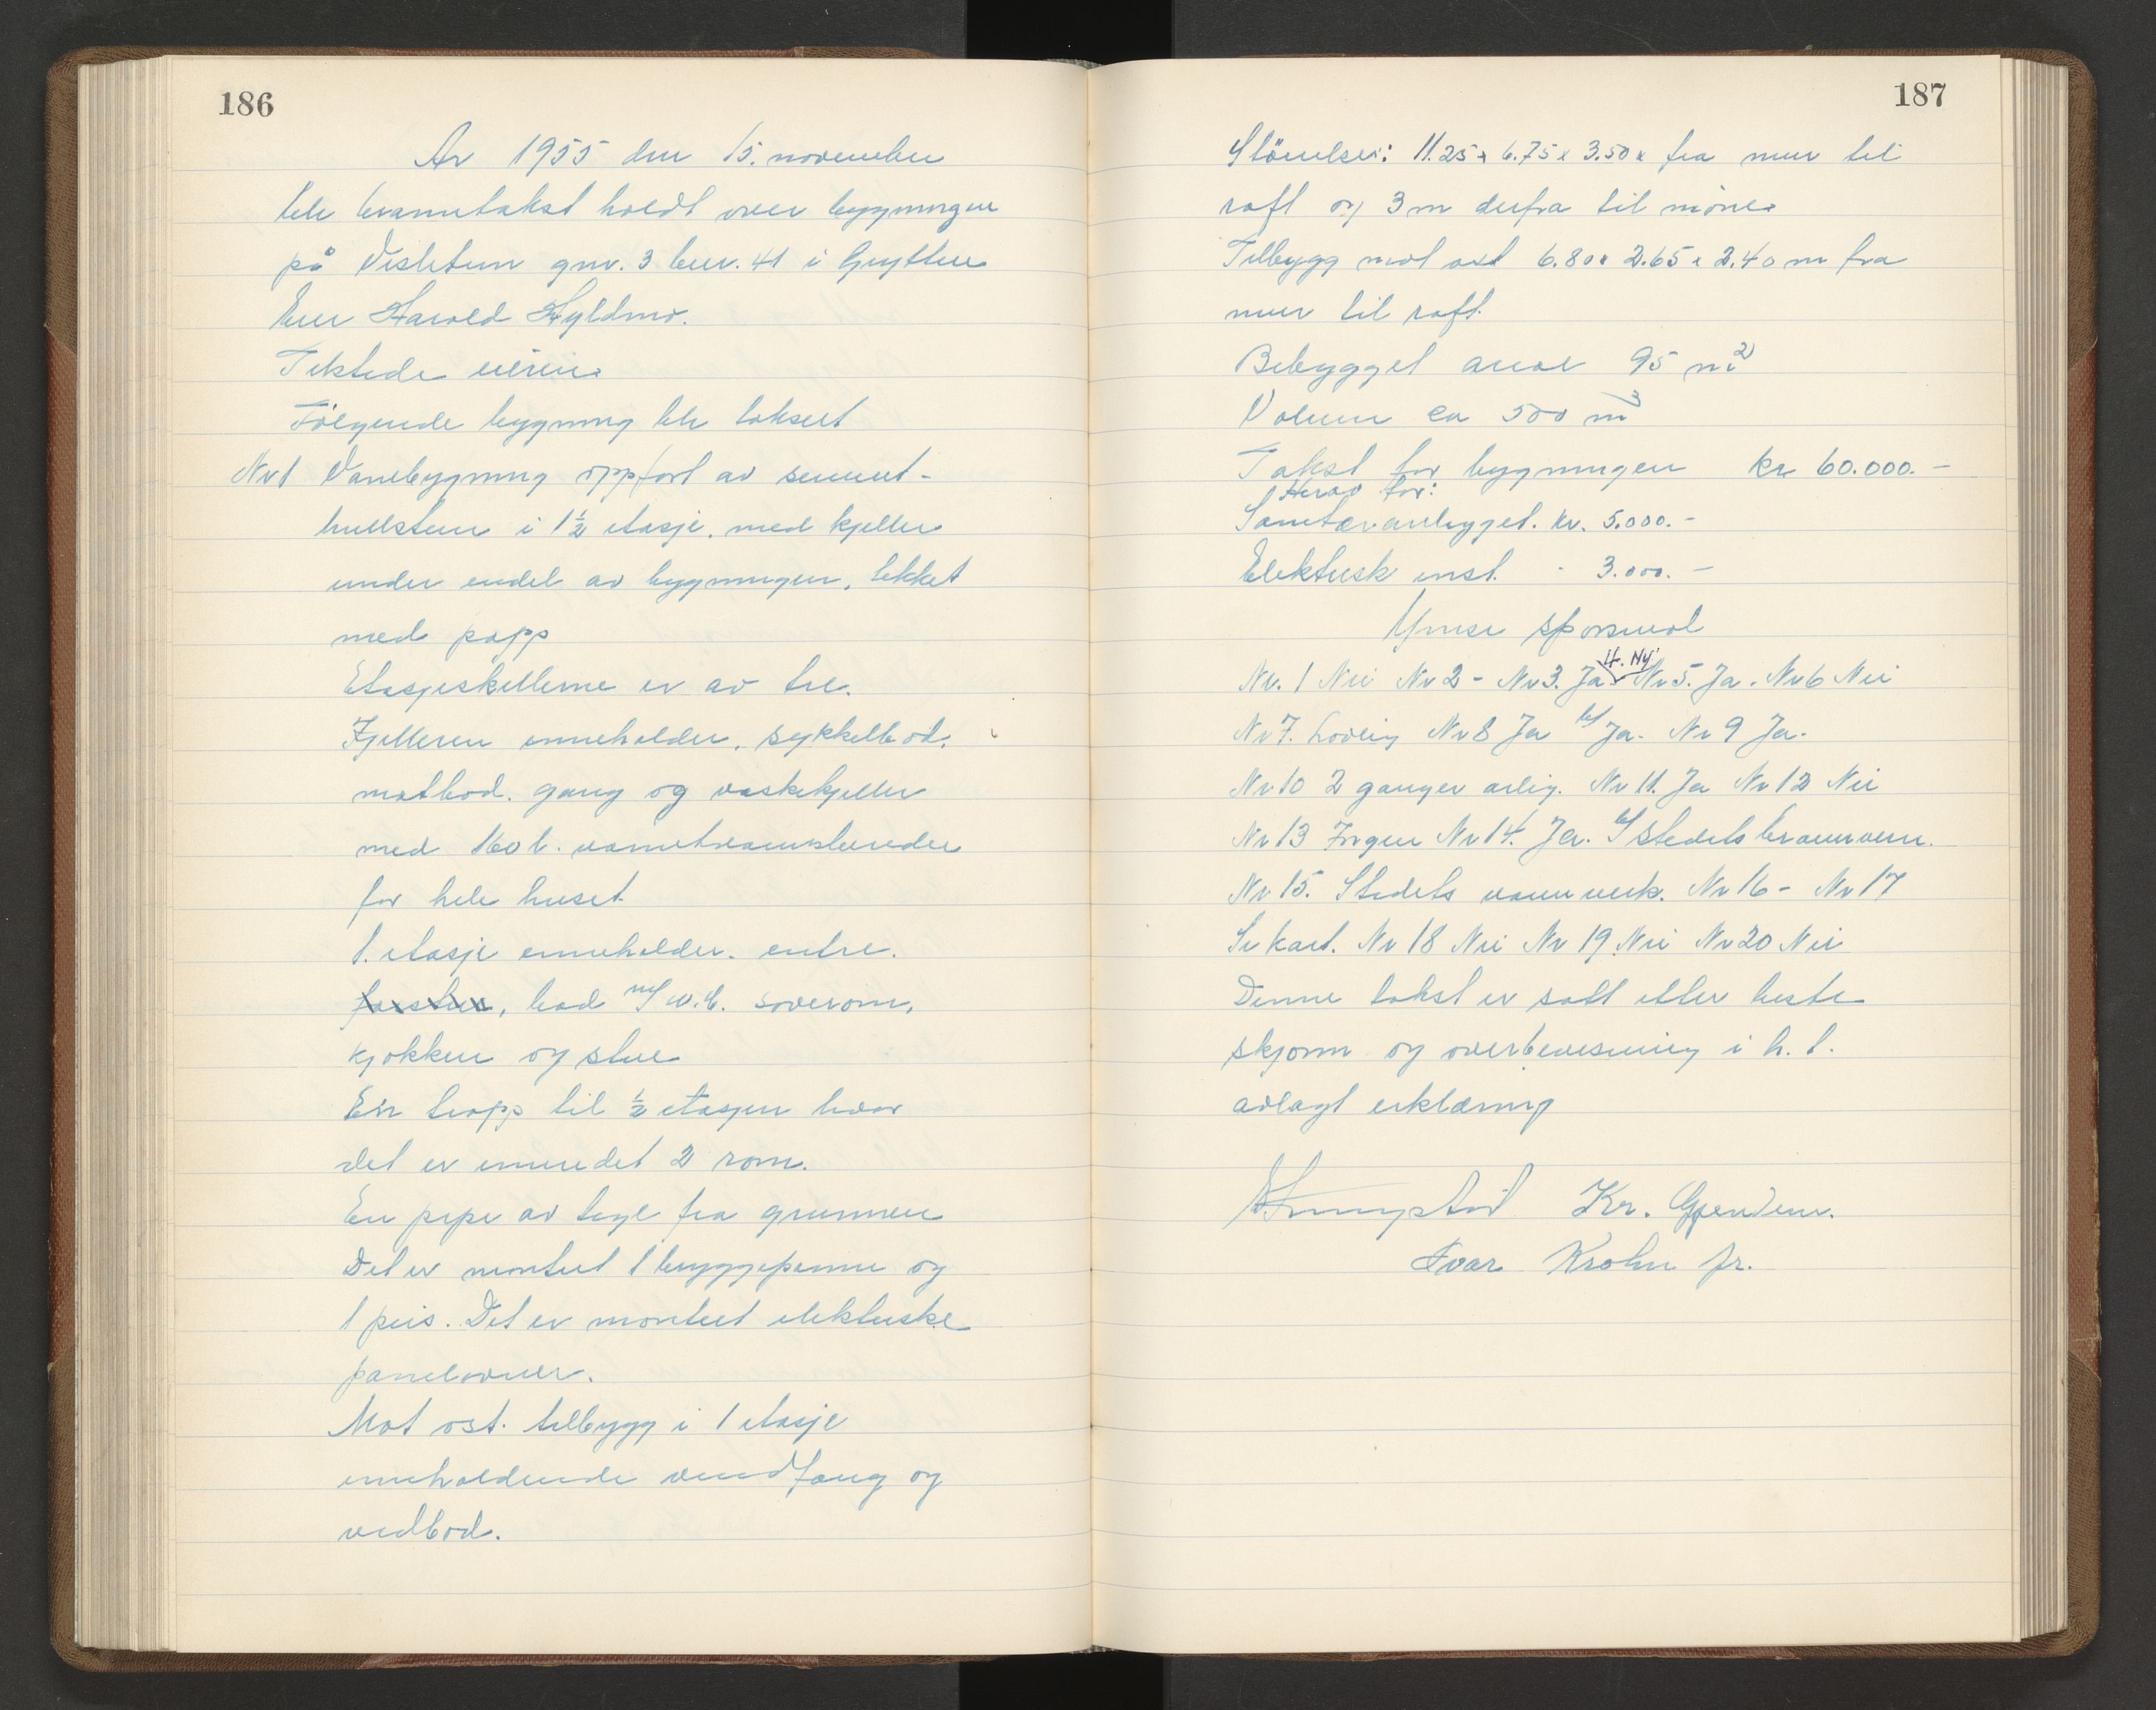 186
År 1955 den 15. november
ble branntakst holdt over bygningen
på Vesletun gnr. 3 bnr. 41 i Grytten
Eier Harald Hyldmo.
Tilstede eieren.
Følgende bygning ble taksert
Nr 1 Vånebygning oppført av sement-
hullstein i 1½ etasje, med kjeller
under endel av bygningen, tekket
med papp
Etasjeskillerne er av tre.
Kjelleren inneholder, sykkelbod,
matbod, gang og vaskekjeller
med 160 l. varmtvannsbereder
for hele huset.
1. etasje inneholder. entre.
, bad m/ w.c. soverom,
kjøkken og stue
En trapp til ½ etasjen hvor
det er innredet 2 rom.
En pipe av tegl fra grunnen
Det er montert 1 bryggepanne og
1 peis. Det er montert elektriske
panelovner.
Mot øst. tilbygg i 1 etasje
inneholdende vindfang og
vedbod.
187
Störrelser: 11.25 x 6.75 x 3.50 x fra mur til
raft og 3 m derfra til möne.
Tilbygg mot øst 6.80 x 2.65 x 2.40 m fra
mur til raft.
Bebygget areal 95 m²
Volum ca 500 m³
Takst for bygningen kr 60.000.-
Herav for:
Sanitæranlegget. kr. 5.000.-
Elektrisk inst. - 3.000.-
Ymse spørsmål
4. Nei
Nr. 1 Nei Nr 2 - Nr 3. Ja. Nr 5. Ja. Nr 6 Nei
Nr 7. Lovlig Nr 8 Ja b/ Ja. Nr 9 Ja.
Nr 10 2 ganger årlig. Nr 11. Ja Nr 12 Nei
Nr 13 Ingen Nr 14. Ja. b/ Stedets brannvern.
Nr 15. Stedets vannverk. Nr 16 - Nr 17
Se kart. Nr 18 Nei Nr 19. Nei Nr 20 Nei
Denne takst er satt etter beste
skjønn og overbevisning i h. t.
avlagt erklæring
Kr. Gjerdem.
Ivar Krohn jr.